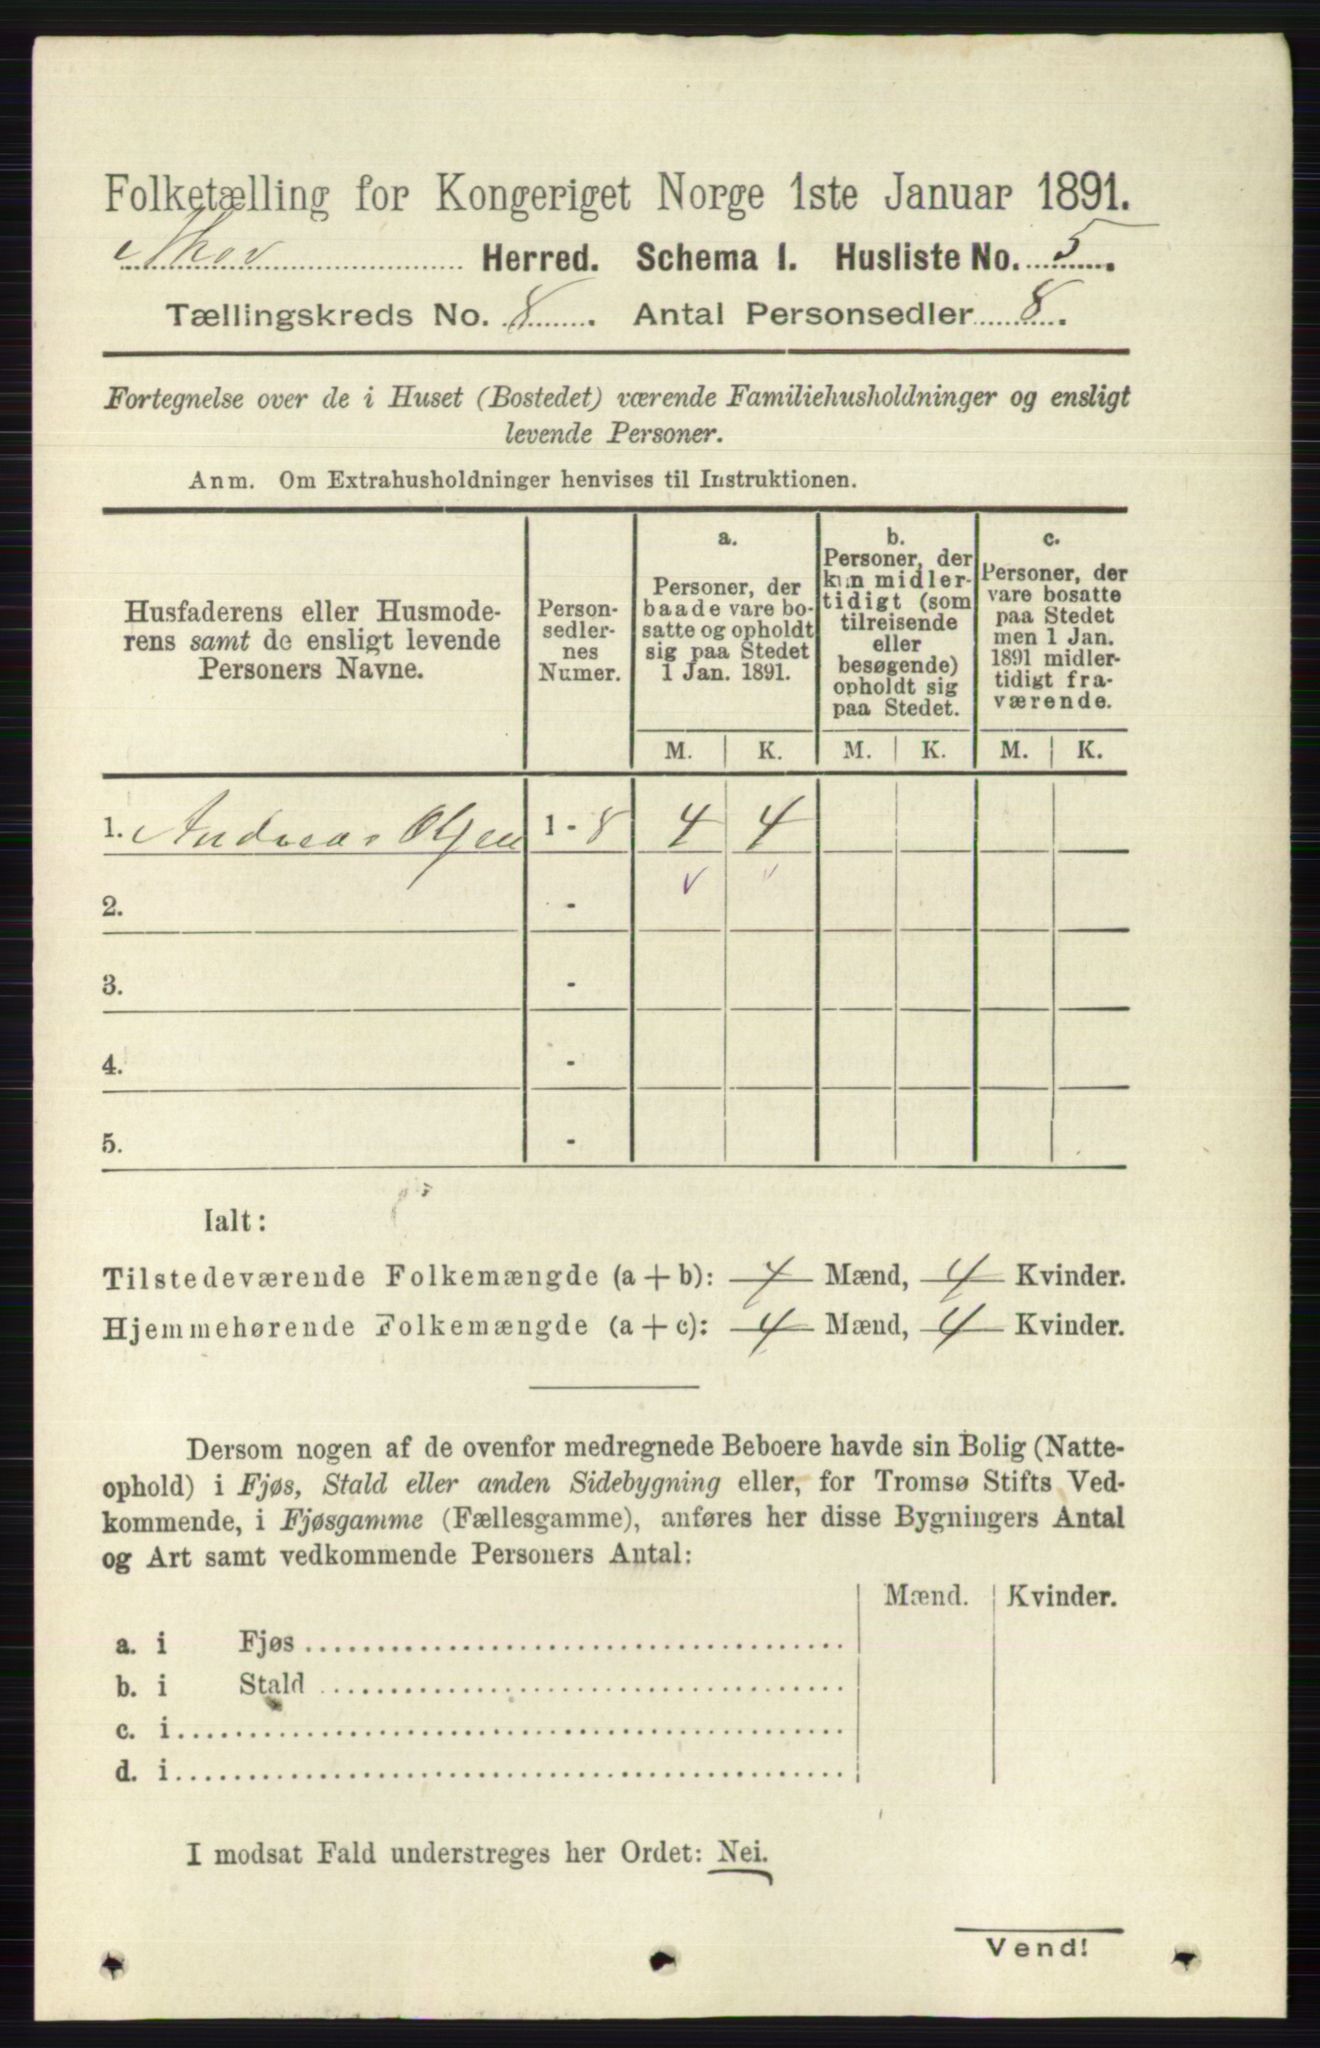 Folketælling for Kongeriget Norge 1ste Januar 1891.
Skov Herred. Schema I. Husliste No. 5.
Tællingskreds No. 8. Antal Personsedler 8.
Fortegnelse over de i Huset (Bostedet) værende Familiehusholdninger og ensligt
levende Personer.
Anm. Om Extrahusholdninger henvises til Instruktionen.
Husfaderens eller Husmode-
rens samt de ensligt levende
Personers Navne.
Person-
sedler-
nes
Numer.
a.
Personer, der
baade vare bo-
satte og opholdt
sig paa Stedet
1 Jan. 1891.
b.
Personer, der
kun midler-
tidigt (som
tilreisende
eller
besøgende)
opholdt sig
paa Stedet.
c.
Personer, der
vare bosatte
paa Stedet
men 1 Jan.
1891 midler-
tidigt fra-
værende.
M. K. M. K. M. K.
1. Andreas Olsen 1 - 8 4 4
2. -
3. -
4. -
5. -
Ialt:
Tilstedeværende Folkemængde (a + b): 4 Mænd, 4 Kvinder.
Hjemmehørende Folkemængde (a + c): 4 Mænd, 4 Kvinder.
Dersom nogen af de ovenfor medregnede Beboere havde sin Bolig (Natte-
ophold) i Fjøs, Stald eller anden Sidebygning eller, for Tromsø Stifts Ved-
kommende, i Fjøsgamme (Fællesgamme), anføres her disse Bygningers Antal
og Art samt vedkommende Personers Antal:
Mænd. Kvinder.
a. i Fjøs
b. i Stald
c. i
d. i
I modsat Fald understreges her Ordet: Nei.
Vend!